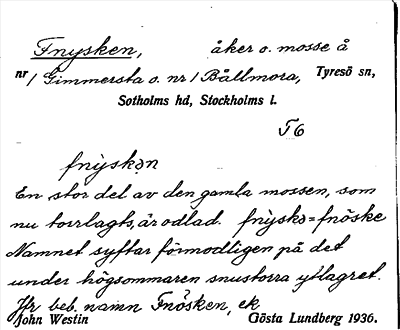 Fnysken, åker o. mosse å
nr 1 Gimmersta o. nr 1 Bållmora, Tyresö sn,
Sotholms hd, Stockholms l.
T6
fnỳskən
En stor del av den gamla mossen, som
nu torrlagts, är odlad. fnỳskə = fnöske
Namnet syftar förmodligen på det
under högsommaren snustorra ytlagret.
Jfr beb. namn Fnösken, ek
John Westin Gösta Lundberg 1936.